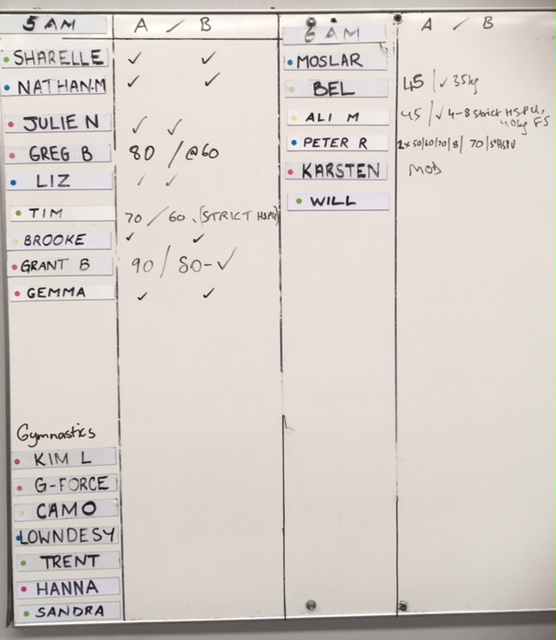 5 AM A / B
SHARELLE ✓ ✓
NATHAN.M ✓ ✓
JULIE N ✓ ✓
GREG B 80 / @60
LIZ ✓ ✓
TIM 70 / 60 (STRICT HSPU)
BROOKE ✓ ✓
GRANT B 90 / 80-✓
GEMMA ✓ ✓
Gymnastics
KIM L
G-FORCE
CAMO
LOWNDESY
TRENT
HANNA
SANDRA
6 AM A / B
MOSLAR
BEL 45 / ✓ 35kg
ALI M 45 / ✓ 4-8 strict HSPU,
40kg FS
PETER R 50/60/70/8/ 70/
KARSTEN MOD
WILL